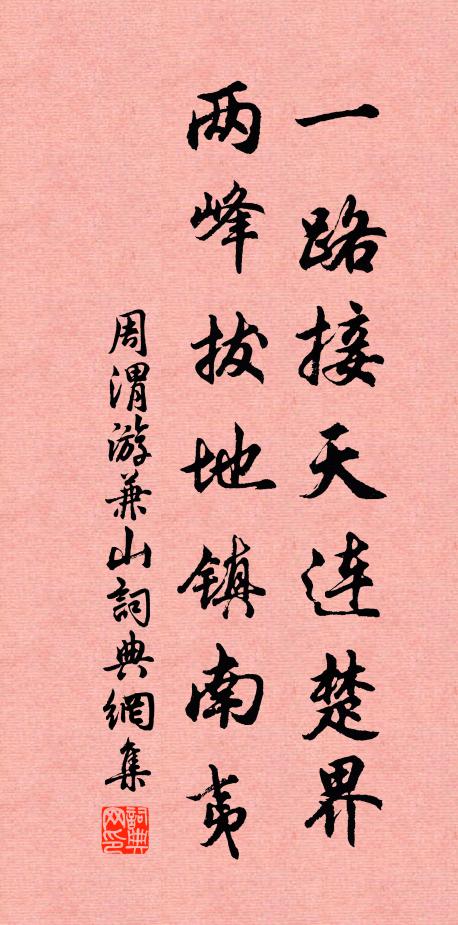 一路接天连楚界
两峰拔地镇南夷
周渭游兼山詞典網集
詞典
网印